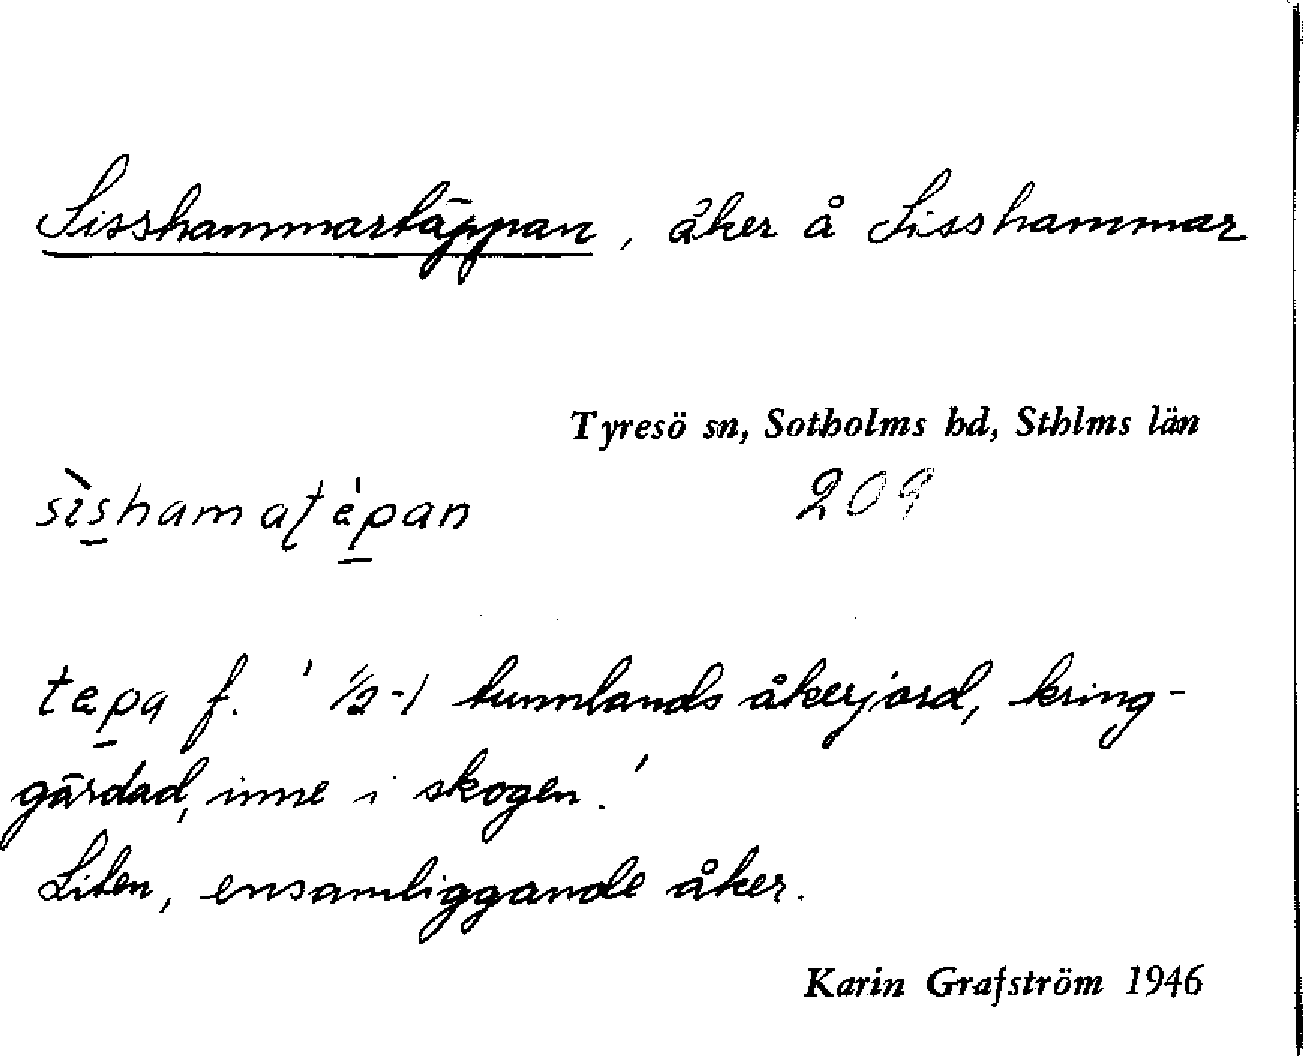 Sisshammartäppan, åker å Sisshammar
Tyresö sn, Sotholms hd, Sthlms län
209
tepa f. ' 1/2-1 tunnlands åkerjord, kring-
gärdad, inne i skogen.'
Liten, ensamliggande åker.
Karin Grafström 1946